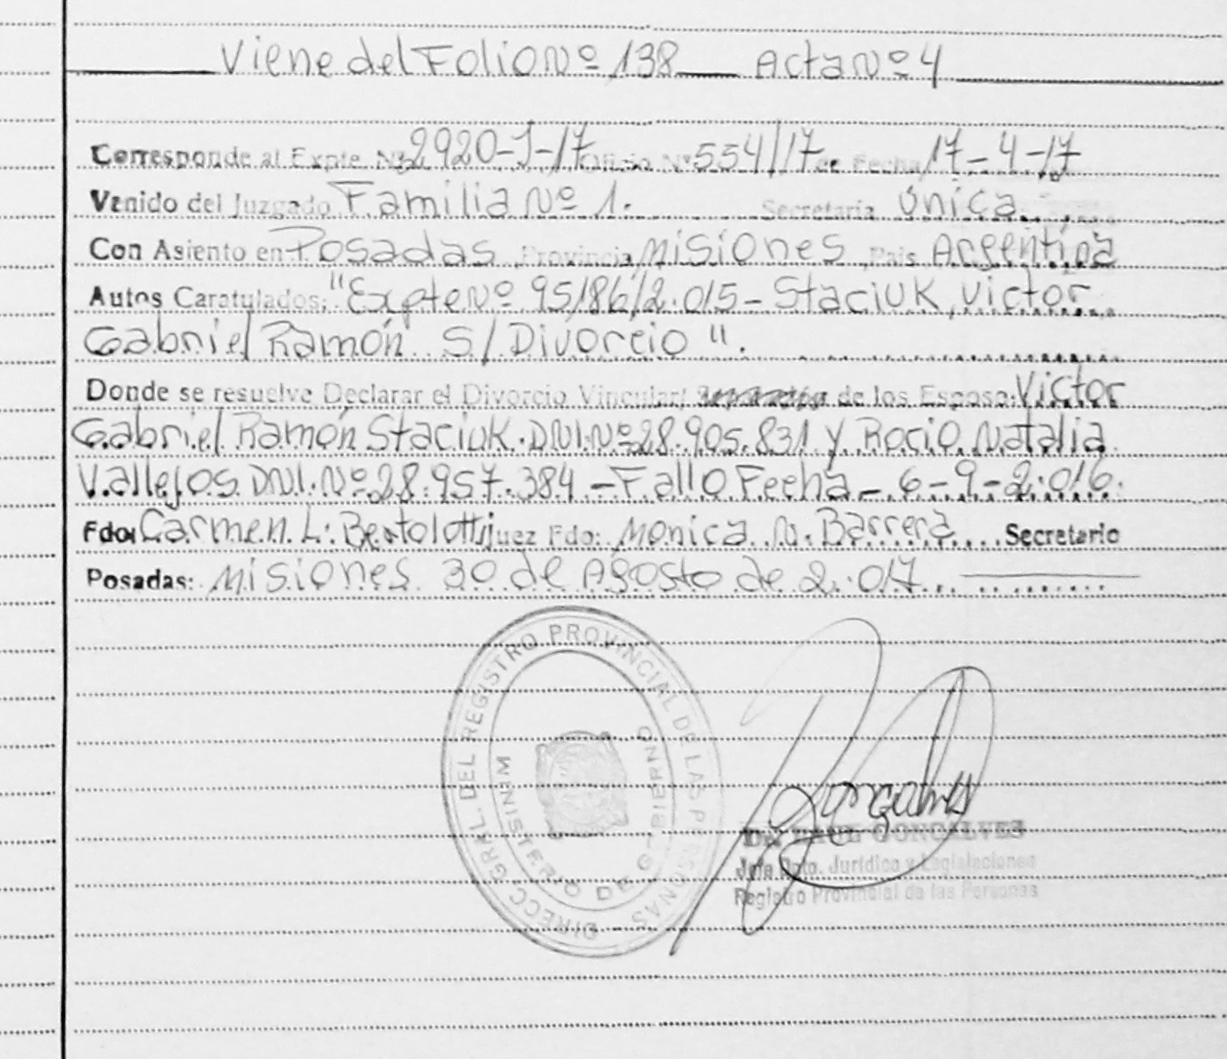 Viene del Folio Nº 138 Acta Nº 4
Corresponde al Expte. Nº 2920-J-17 Oficio Nº 554/17 de Fecha 17-4-17
Venido del Juzgado Familia Nº 1. Secretaría Única.
Con Asiento en Posadas Provincia Misiones País Argentina
Autos Caratulados: "Expte Nº 95186/2.015 - Staciuk, Victor
Gabriel Ramón S/Divorcio".
Donde se resuelve Declarar el Divorcio Vincular de los Esposo: Victor
Gabriel Ramón Staciuk. DNI. Nº 28.905.831 y Rocio Natalia
Vallejos DNI. Nº 28.957.384 - Fallo Fecha - 6-9-2.016.
Fdo: Carmen L. Bertolotti Juez Fdo: Monica N. Barrera Secretario
Posadas: Misiones 30 de Agosto de 2.017.
DIRECC. GRAL. DEL REGISTRO PROVINCIAL DE LAS PERSONAS
MINISTERIO DE GOBIERNO
Dr. RAUL GONCALVES
Jefe Dpto. Jurídico y Legislaciones
Registro Provincial de las Personas